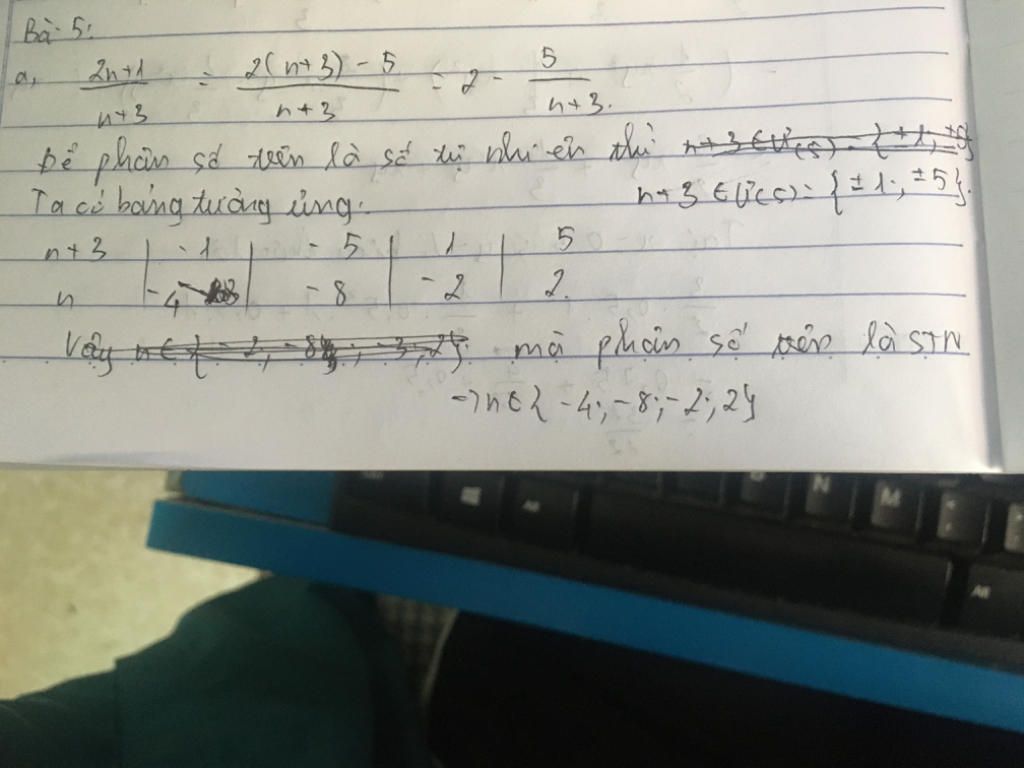 Bài 5:
a, 2n+1 / n+3 = 2(n+3) - 5 / n+3 = 2 - 5 / n+3.
Để phân số trên là số tự nhiên thì
n+3 ∈ Ư(5) = { ±1; ±5}.
Ta có bảng tương ứng:
n+3 | -1 | -5 | 1 | 5
n | -4 | -8 | -2 | 2.
Vậy mà phân số trên là STN
→ n ∈ { -4; -8; -2; 2}
N M
Alt